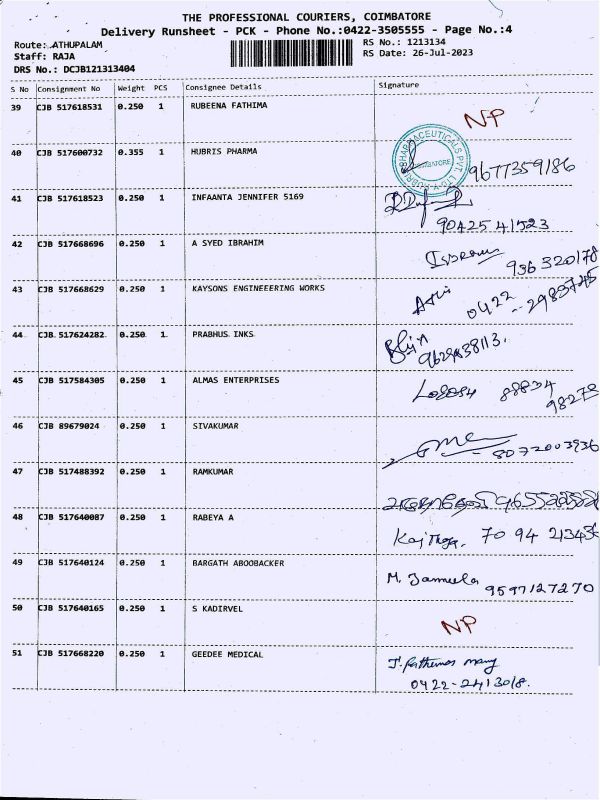 THE PROFESSIONAL COURIERS, COIMBATORE
Delivery Runsheet - PCK - Phone No.:0422-3505555 - Page No.:4
Route:.ATHUPALAM
RS No.: 1213134
Staff: RAJA
RS Date: 26-Jul-2023
DRS No.: DCJB121313404
S No Consignment No Weight PCS Consignee Details Signature
39 CJB 517618531 0.250 1 RUBEENA FATHIMA
NP
40 CJB 517600732 0.355 1 HUBRIS PHARMA
COIMBATORE
9677359186
41 CJB 517618523 0.250 1 INFAANTA JENNIFER 5169
90425 41523
42 CJB 517668696 0.250 1 A SYED IBRAHIM
936 320178
43 CJB 517668629 0.250 1 KAYSONS ENGINEEERING WORKS
0422 - 2983745
44 CJB 517624282 0.250 1 PRABHUS INKS
45 CJB 517584305 0.250 1 ALMAS ENTERPRISES
88834
98278
46 CJB 89679024 0.250 1 SIVAKUMAR
8072003936
47 CJB 517488392 0.250 1 RAMKUMAR
48 CJB 517640087 0.250 1 RABEYA A
70 94 21343
49 CJB 517640124 0.250 1 BARGATH ABOOBACKER
M. Jameela
9597127270
50 CJB 517640165 0.250 1 S KADIRVEL
NP
51 CJB 517668220 0.250 1 GEEDEE MEDICAL
0422-2413018.